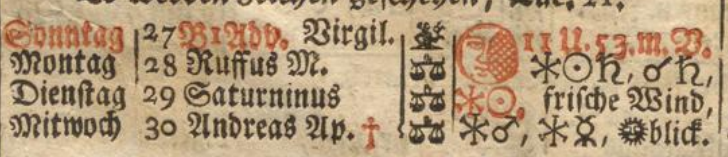 Sonntag 27 B1Adv. Virgil. ♍ 11 U. 53. m. V.
Montag 28 Ruffus M. ♎ ⚹☉♄, ☌♄,
Dienstag 29 Saturninus ♎ ⚹☉, frische Wind,
Mitwoch 30 Andreas Ap. † ♎ ⚹♂, ⚹☿, blick.